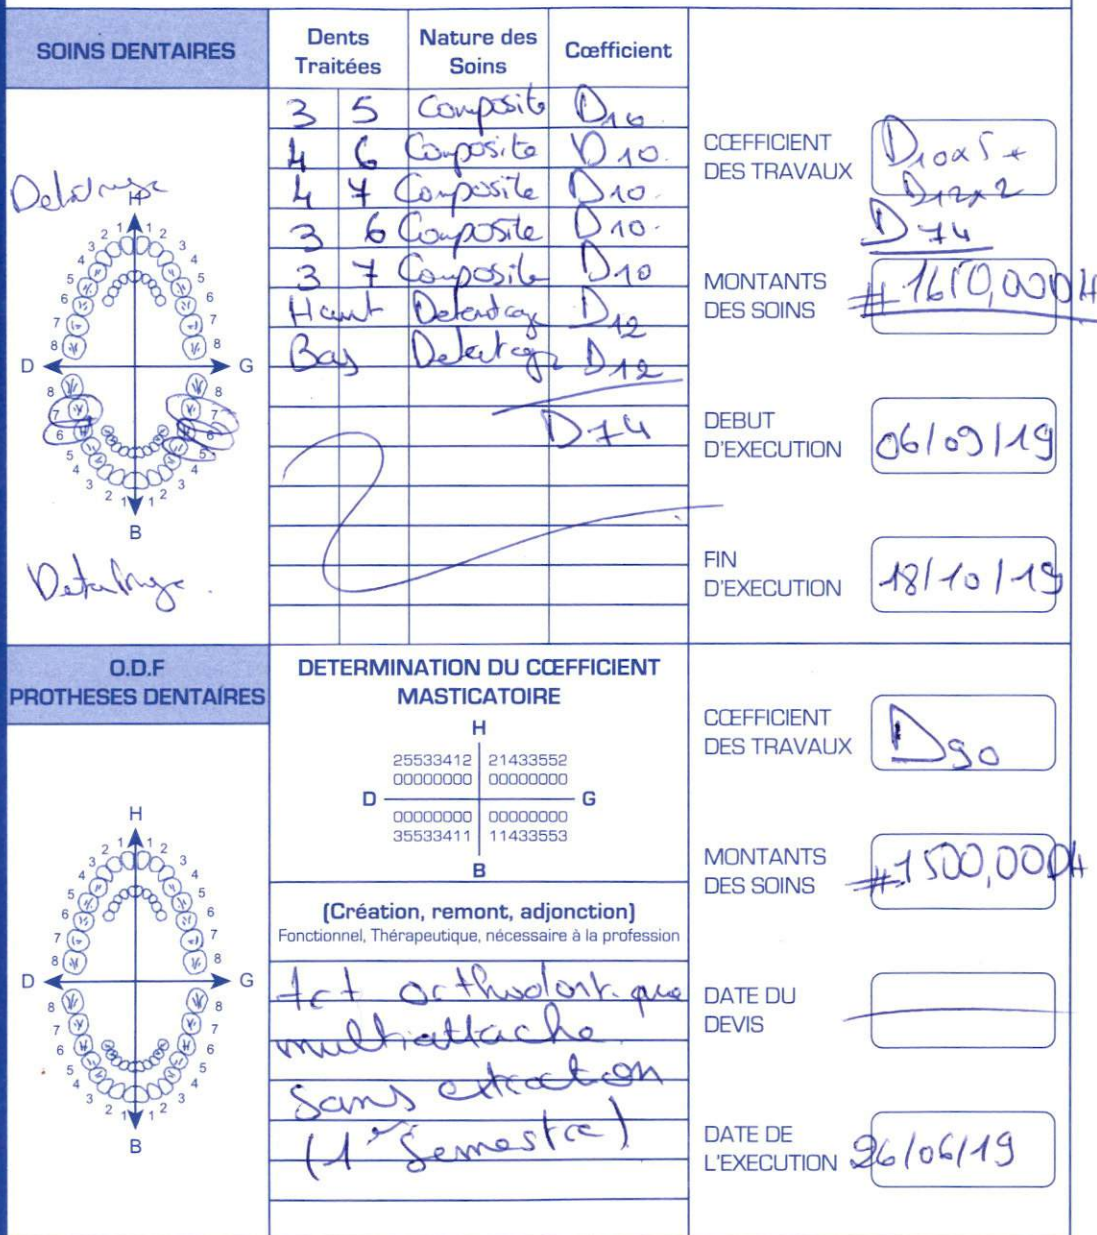 SOINS DENTAIRES
Dents Traitées
Nature des Soins
Cœfficient
3 5 Composite D10
4 6 Composite D10.
4 7 Composite D10.
3 6 Composite D10.
3 7 Composite D10
Haut Detartage D12
Bas Detartage D12
D74
Detartrage
H
1 1
2 2
3 3
4 4
5 5
6 6
7 7
8 8
D G
8 8
7 7
6 6
5 5
4 4
3 3
2 2
1 1
B
Detartrage.
CŒFFICIENT
DES TRAVAUX
D10x5+
D12x2
D74
MONTANTS
DES SOINS
# 1650,00DH
DEBUT
D'EXECUTION
06/09/19
FIN
D'EXECUTION
18/10/19
O.D.F
PROTHESES DENTAIRES
H
1 1
2 2
3 3
4 4
5 5
6 6
7 7
8 8
D G
8 8
7 7
6 6
5 5
4 4
3 3
2 2
1 1
B
DETERMINATION DU CŒFFICIENT
MASTICATOIRE
H
25533412 21433552
00000000 00000000
D G
00000000 00000000
35533411 11433553
B
(Création, remont, adjonction)
Fonctionnel, Thérapeutique, nécessaire à la profession
Act orthodontique
multiattache
sans extraction
(1er Semestre)
CŒFFICIENT
DES TRAVAUX
D90
MONTANTS
DES SOINS
# 1500,00DH
DATE DU
DEVIS
DATE DE
L'EXECUTION
26/06/19